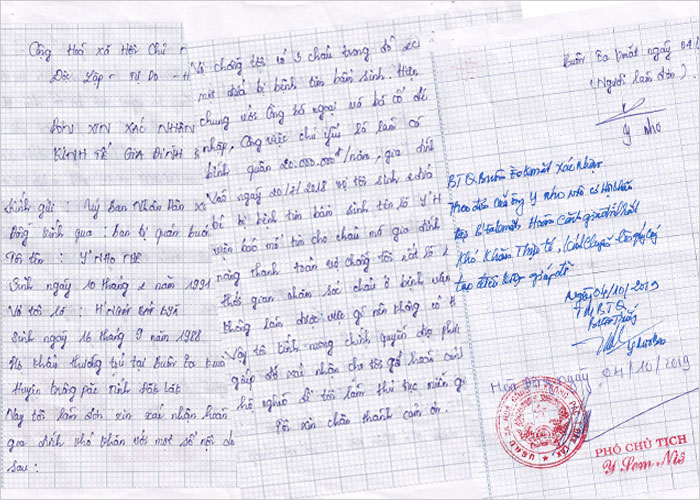 Cộng Hoà xã Hội Chủ
Độc Lập - Tự Do - H
ĐƠN XIN XÁC NHẬN
KINH TẾ GIA ĐÌNH
Kính gửi : Uỷ Ban Nhân Dân x
Đồng kính gửi : ban tự quản buôn
Tôi tên : Y' NHO
Sinh ngày 10 tháng 2 năm 1991
Vợ tôi là : H'
Sinh ngày 16 tháng 9 năm 1988
Hộ khẩu thường trú tại Buôn Ea
Huyện Krông pắc tỉnh Đăk Lăk
Nay tôi làm đơn xin xác nhận hoàn
gia đình khó khăn với một số nội du
sau :
Vợ chồng tôi có 3 cháu trong đó có
một đứa bị bệnh tim bẩm sinh. Hiện
chung với ông bà ngoại và bà cố đã
nhập, Công việc chủ yếu là làm có
bình quân 20.000.000đ/năm, gia đình
Vào ngày 20/7/2018 vợ tôi sinh
bé bị bệnh tim bẩm sinh tên là Y' H
viện báo mổ tim cho cháu mà gia đình
năng thanh toán vợ chồng tôi rất lo
thời gian chăm sóc cháu ở bệnh viện
không làm được việc gì nên không có
Vậy tôi kính mong chính quyền địa phươ
giúp đỡ xác nhận cho tôi gặp hoàn cảnh
hộ nghèo để tôi làm thủ tục miễn gi
Tôi xin chân thành cảm ơn.
Buôn Ea Kmát ngày 04/
(Người làm đơn)
Y Nho
BTQ Buôn Ea Kmát xác Nhận
Theo đơn của ông Y Nho
tại B Eakmát, Hoàn cảnh gia đình rất
khó khăn Thực tế,
tạo điều kiện giúp đỡ
Ngày 04/10/2019
TM BTQ
Buôn Trưởng
ngày 04/10/2019
PHÓ CHỦ TỊCH
Y Sem Niê